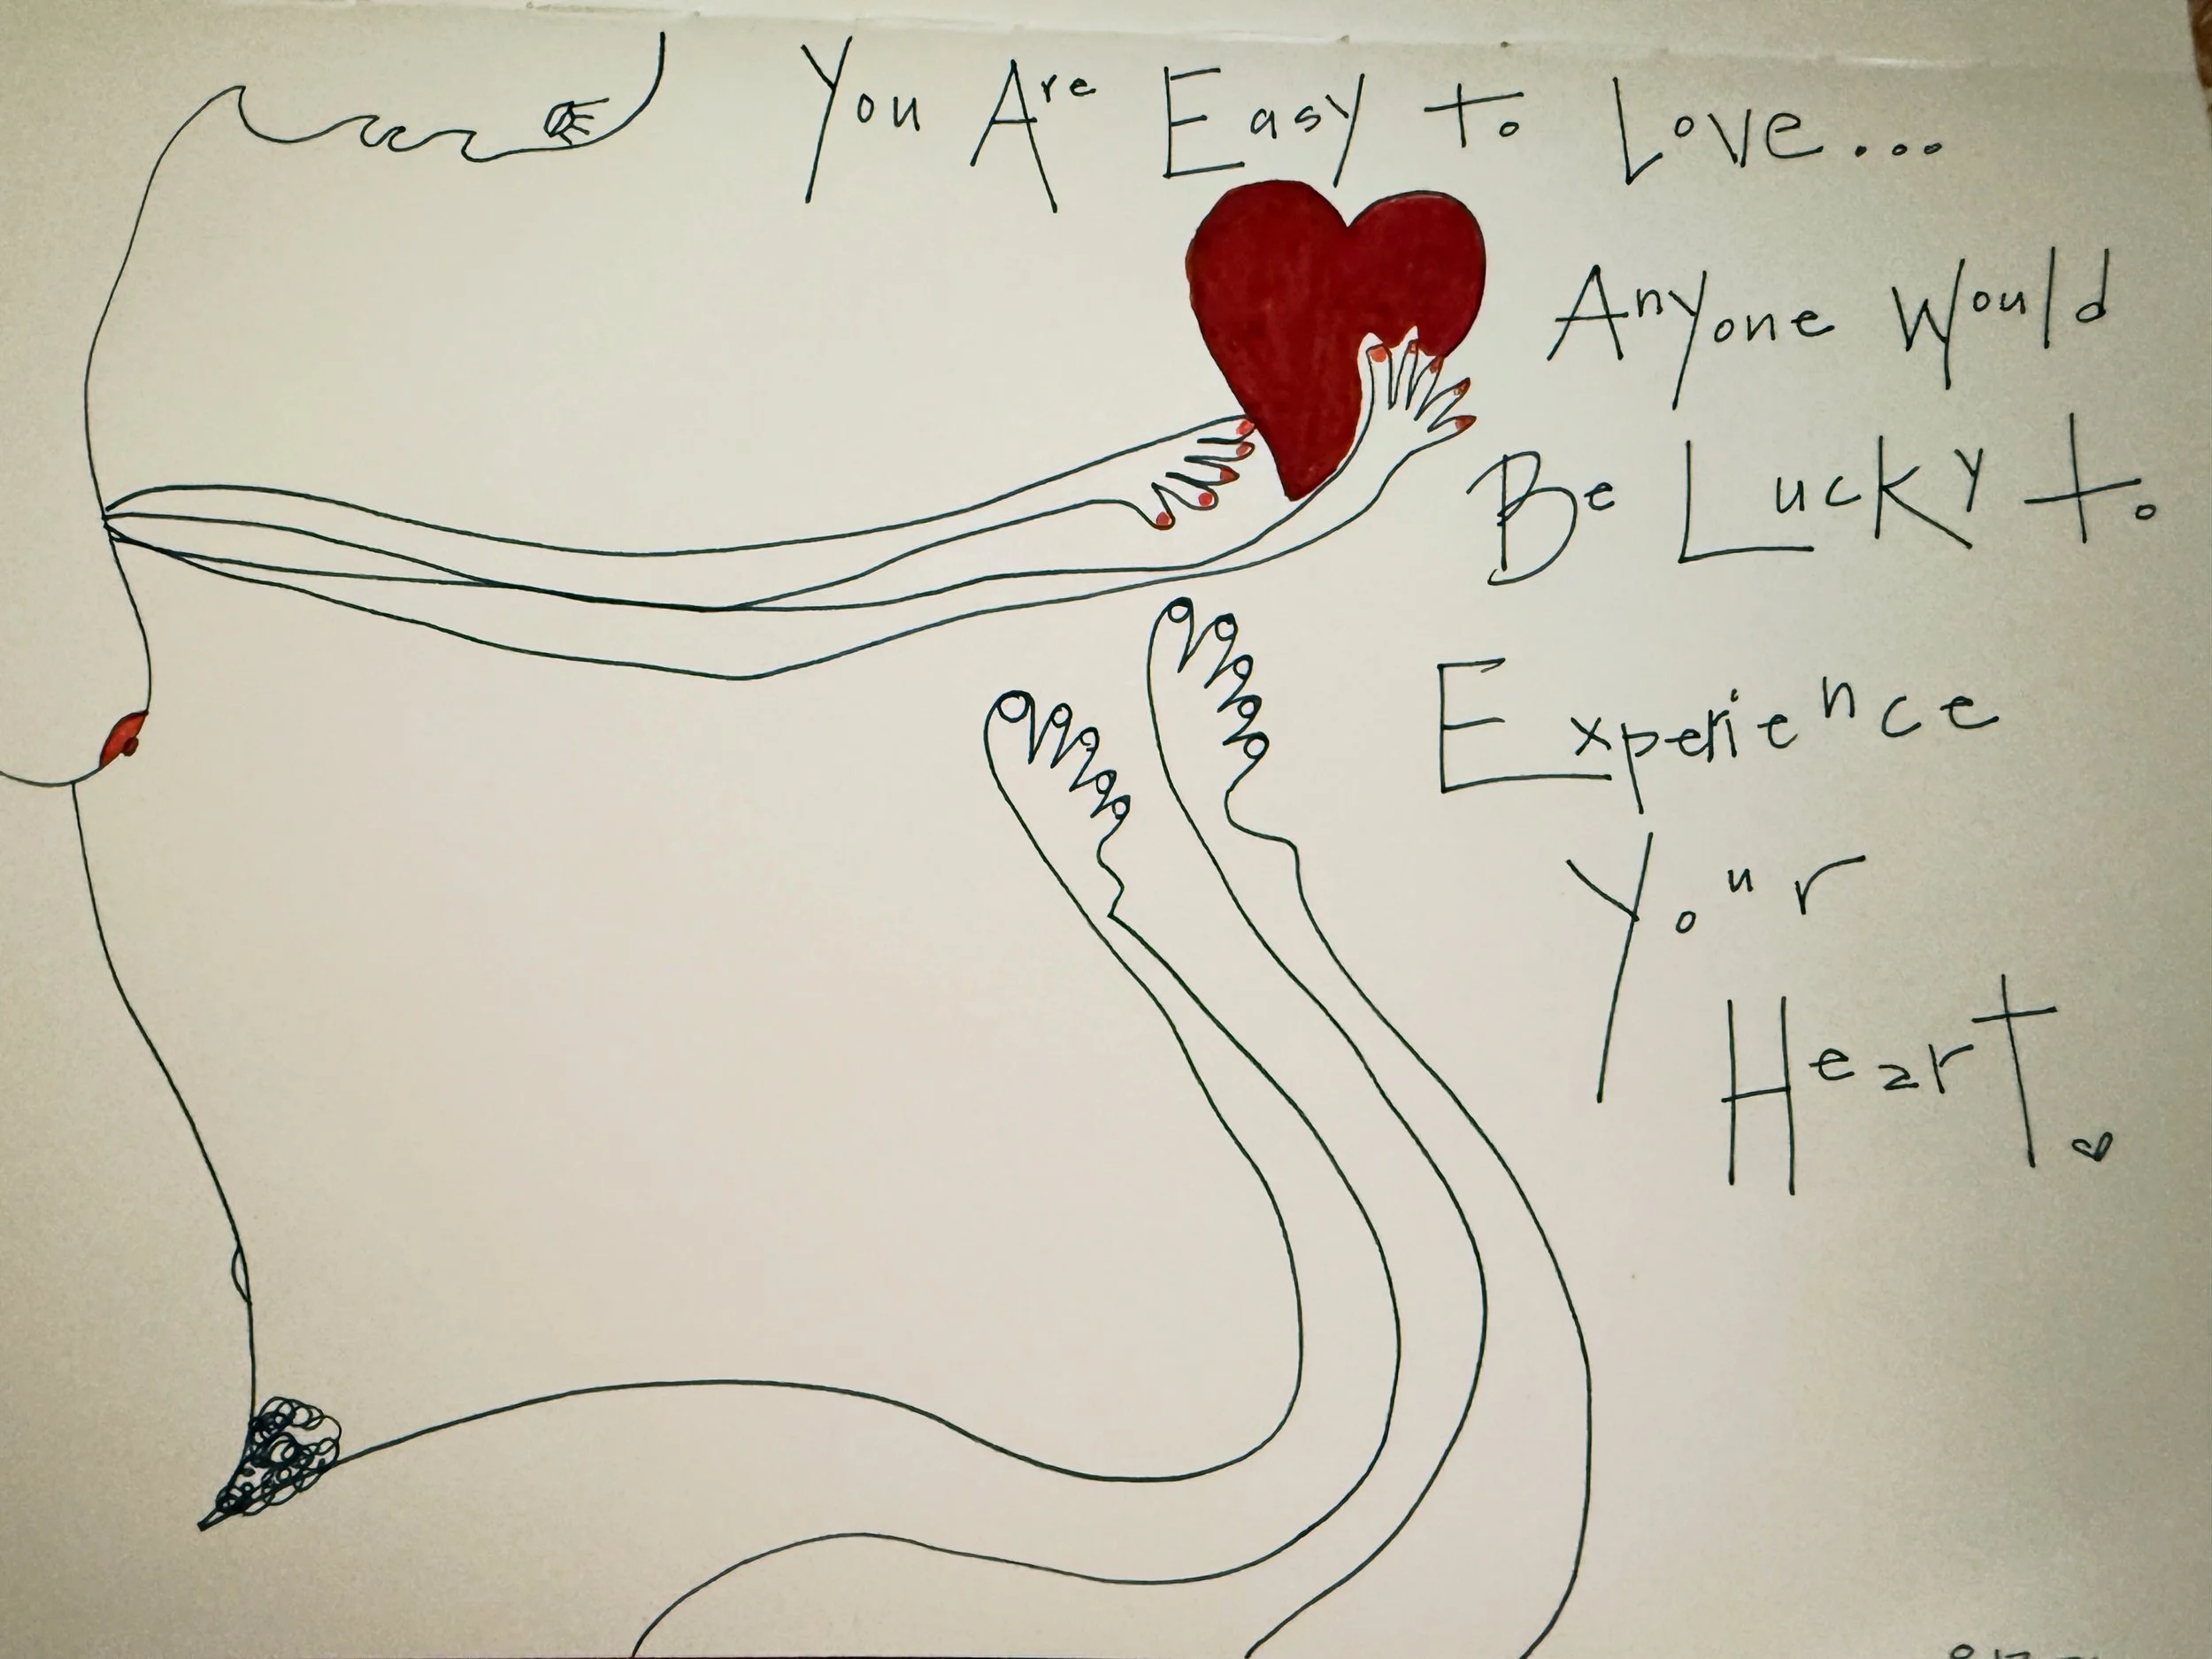 You Are Easy to Love...
Anyone Would
Be Lucky to
Experience
Your
Heart.